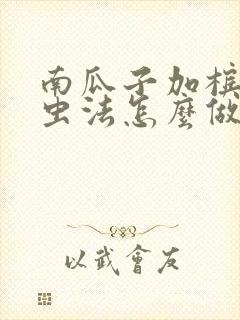 南瓜子加榧
虫法怎麼做
以武會友